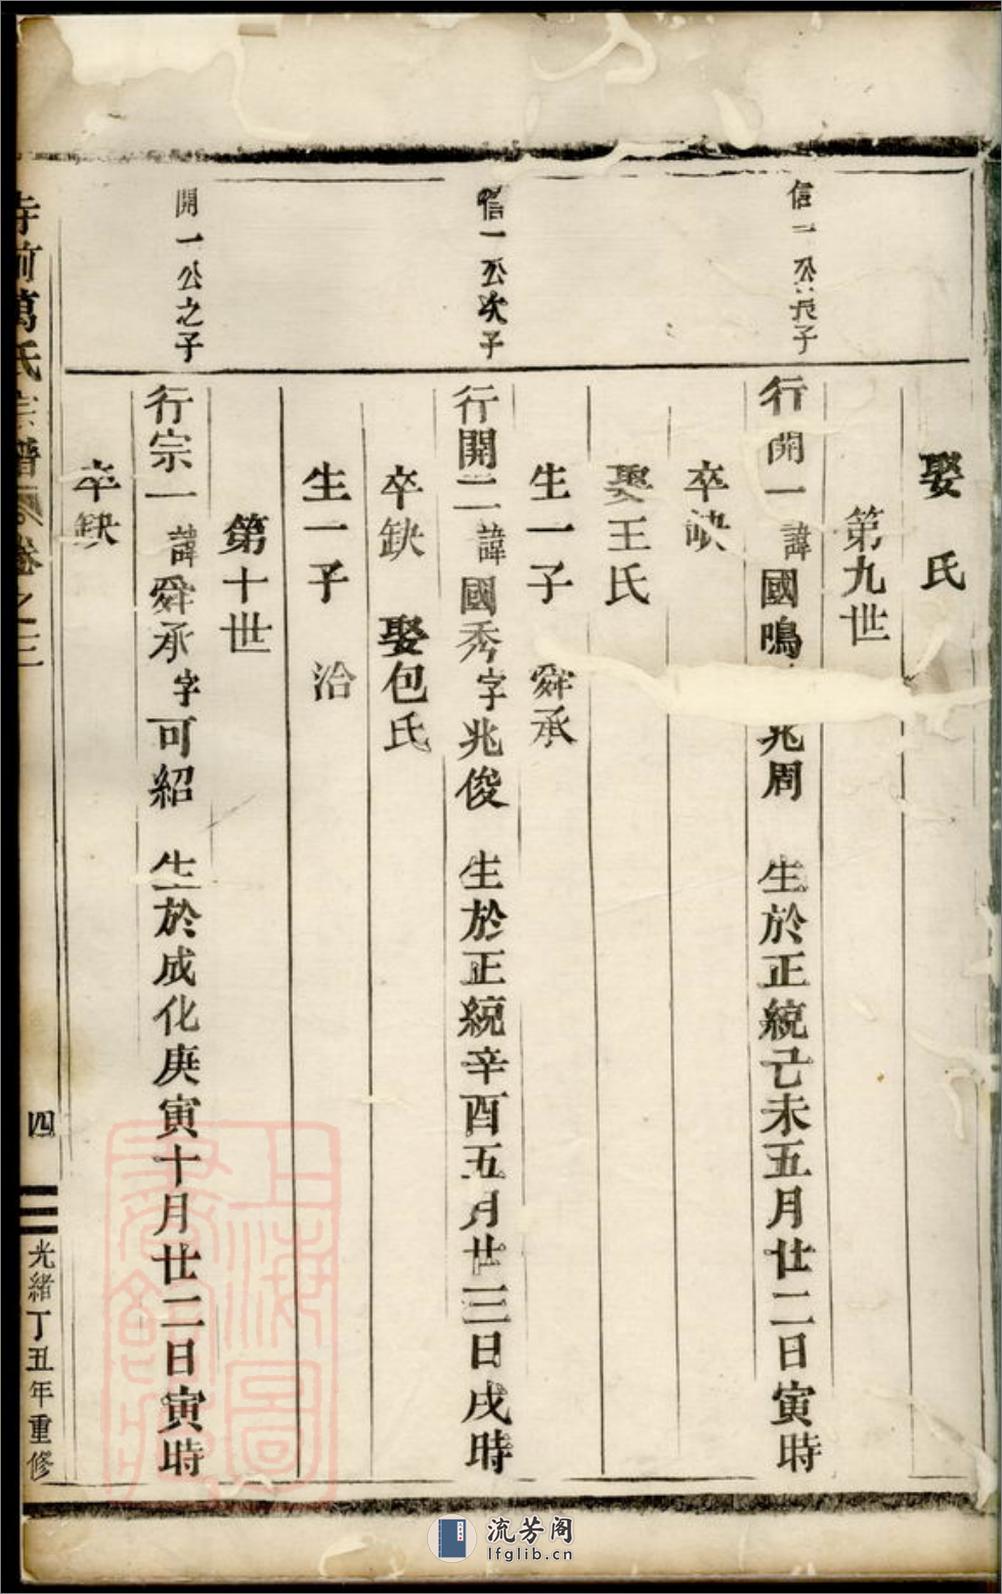 娶 氏
第九世
信一公長子
行開一諱國鳴 兆周 生於正統己未五月廿二日寅時
卒缺
娶王氏
生一子 舜承
信一公次子
行開二諱國秀字兆俊 生於正統辛酉五月廿三日戌時
卒缺 娶包氏
生一子 治
第十世
開一公之子
行宗一諱舜承字可紹 生於成化庚寅十月廿二日寅時
卒缺
寺前萬氏宗譜 卷之三 四 光緒丁丑年重修
上海圖書館藏
流芳阁
lfglib.cn